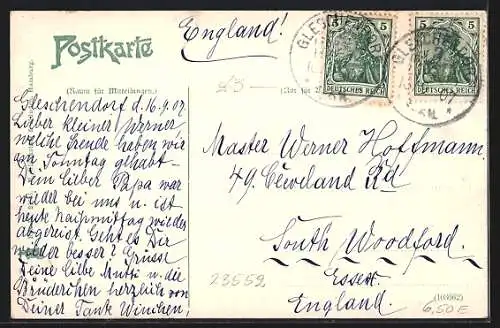 England!
Postkarte
5 5
DEUTSCHES REICH
5 5
DEUTSCHES REICH
GLESCHENDORF
GLESCHENDORF
(Raum für Mitteilungen.)
Gleschendorf d. 16.9.07
Lieber kleiner Werner,
welche Freude haben wir
am Sonntag gehabt-
Dein lieber Papa war
wieder bei uns u. ist
heute Nachmittag wieder
abgereist. Geht es Dir
wieder besser? Grüsse
Deine liebe Mutti u. die
Brüderchen herzlich von
Deiner Tante Winchen,
Master Werner Hoffmann.
49. Cleveland Rd
South Woodford.
Essex
England.
23559
(100662)
6,50 E
Hamburg.